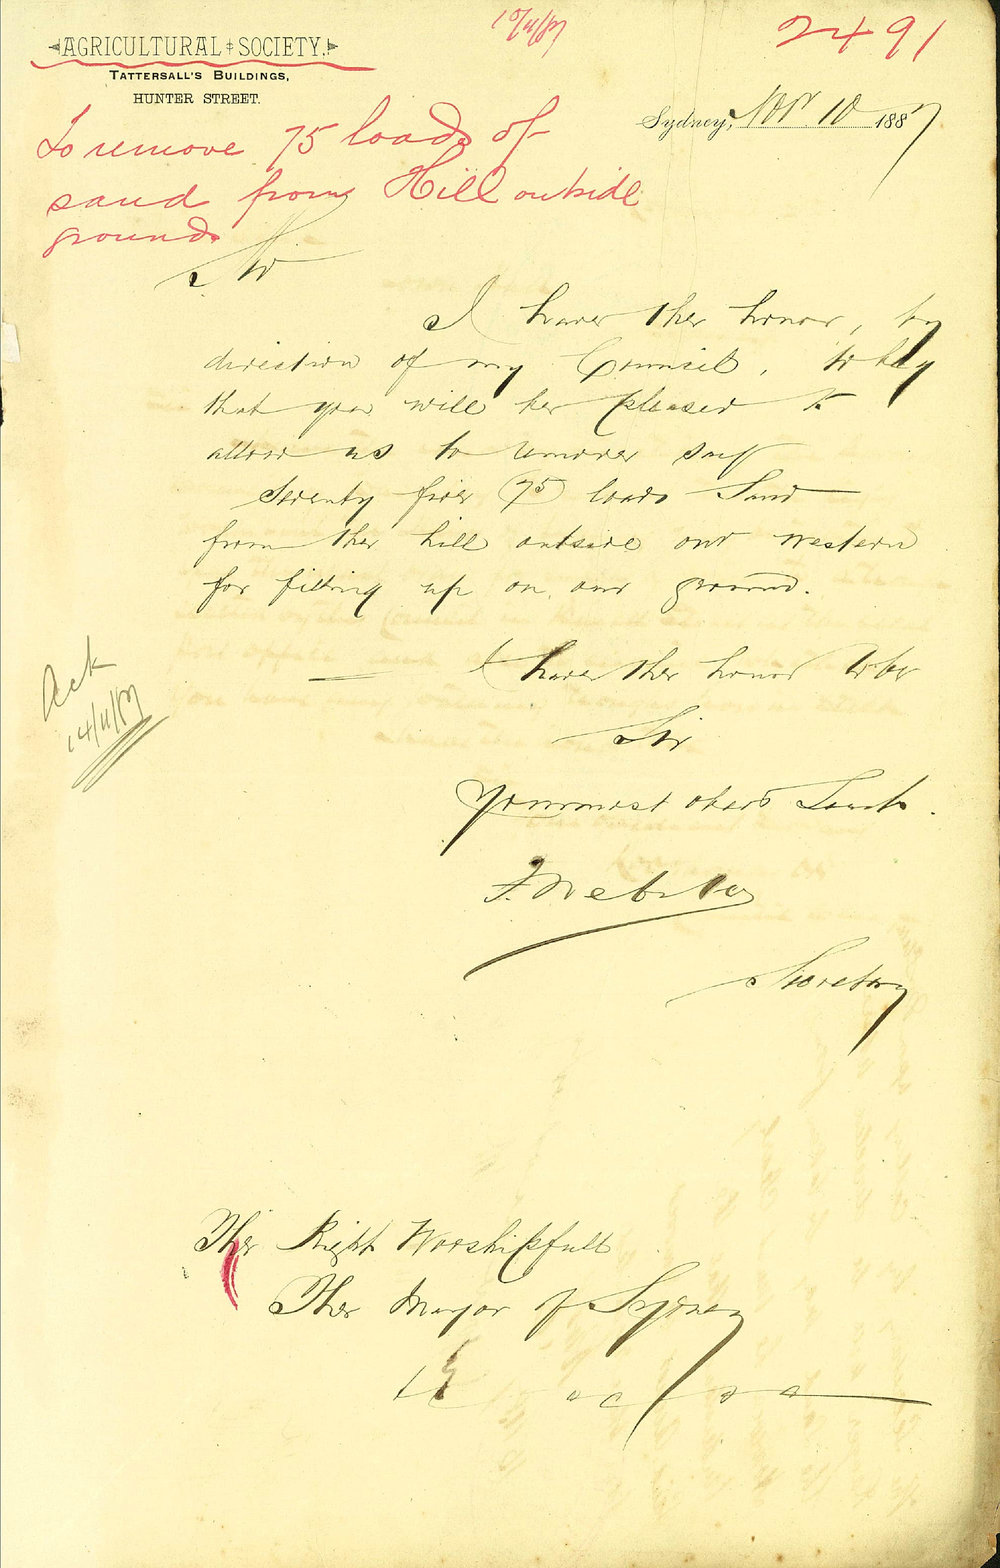 10/11/87
2491
AGRICULTURAL SOCIETY,
TATTERSALL'S BUILDINGS,
HUNTER STREET.
Sydney, Novr 10 1887
To remove 75 loads of
sand from Hill outside
grounds
Sir
I have the honor, by
direction of my Council,
that you will be pleased to
allow us to remove say
Seventy five (75) loads Sand
from the hill outside our western
for filling up on our ground.
I have the honor to be
Sir
Your most obedt Servt.
F. Webster
Secretary
Ack
14/11/87
The Right Worshipfull
The Mayor of Sydney